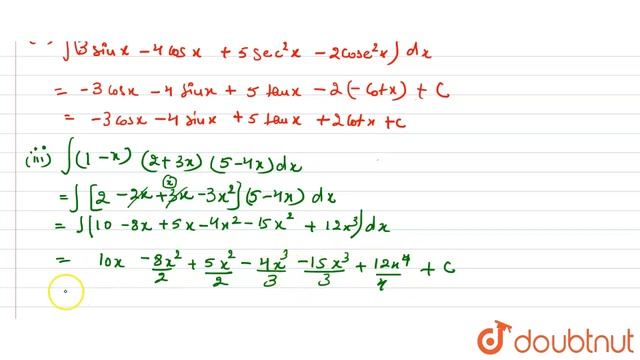 ∫(3 sinx − 4cosx + 5 sec²x − 2cose²x) dx
= −3 cosx − 4 sinx + 5 tanx − 2(−cotx) + C
= −3cosx − 4 sinx + 5 tanx + 2cotx + c
(iii) ∫(1 − x) (2 + 3x) (5 − 4x) dx
= ∫[2 − 2x + 3x − 3x²] (5 − 4x) dx
x
= ∫(10 − 8x + 5x − 4x² − 15x² + 12x³) dx
= 10x − 8x²/2 + 5x²/2 − 4x³/3 − 15x³/3 + 12x⁴/4 + C
doubtnut